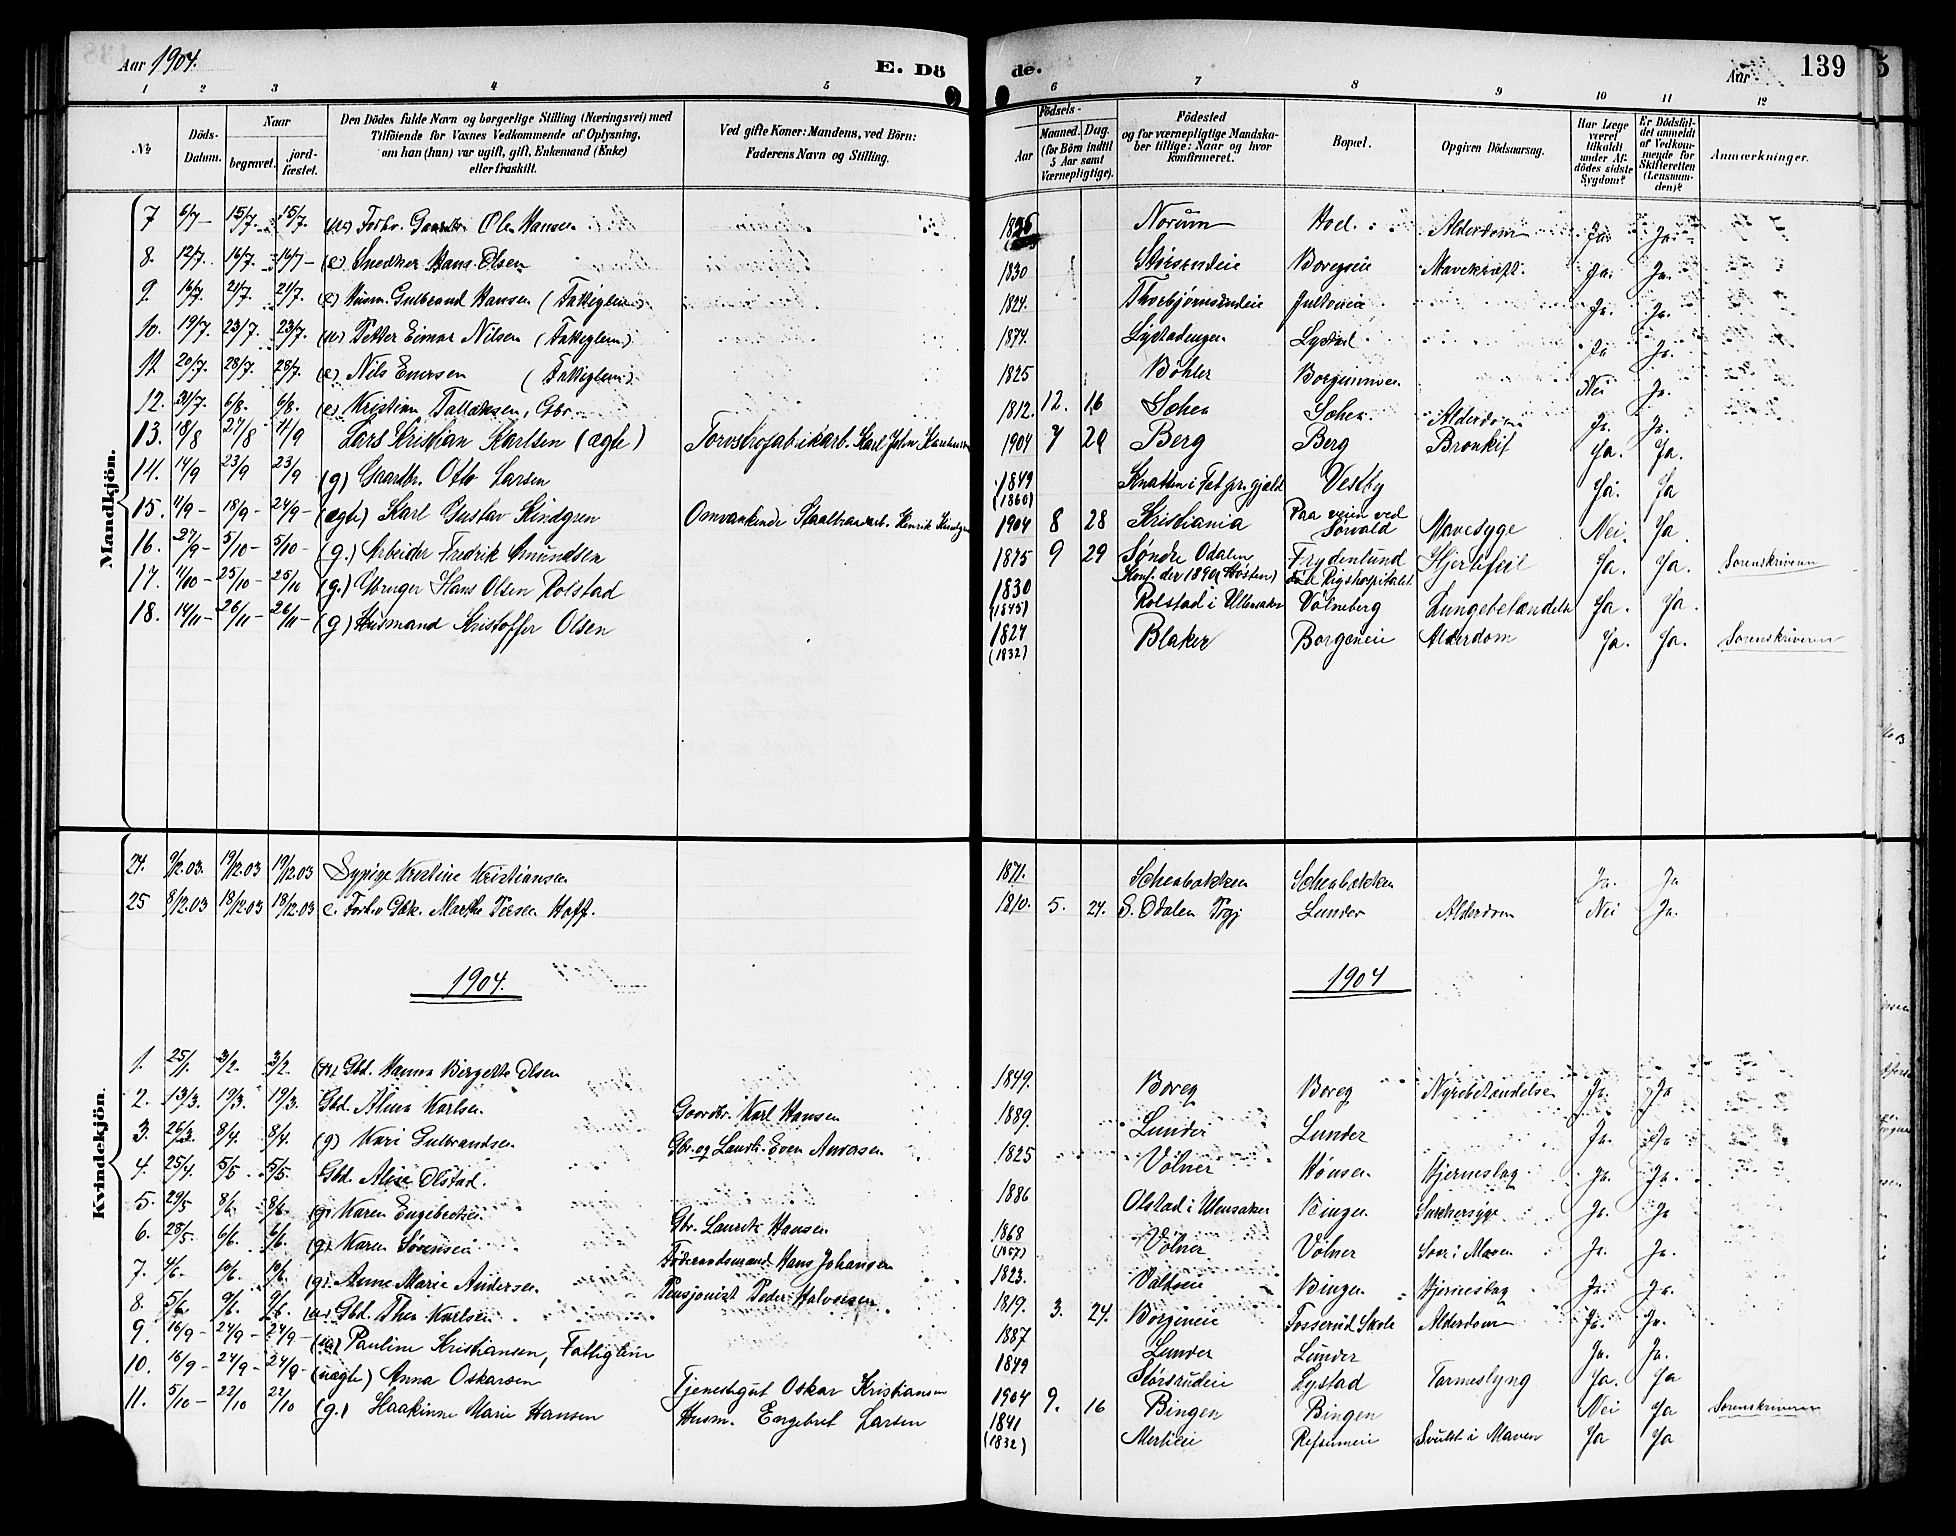 Aar 1904.
E. Dö
de.
Aar
139
1 2 3 4 5 6 7 8 9 10 11 12
No
Döds-Datum.
Naar
begravet.
jord-fæstet.
Den Dödes fulde Navn og borgerlige Stilling (Næringsvei) med Tilföiende for Voxnes Vedkommende af Oplysning, om han (hun) var ugift, gift, Enkemand (Enke) eller fraskilt.
Ved gifte Koner: Mandens, ved Börn: Faderens Navn og Stilling.
Födsels-
Aar
Maaned. Dag.
(for Börn indtil 5 Aar samt Værnepligtige).
Födested og for værnepligtige Mandskaber tillige: Naar og hvor konfirmeret.
Bopæl.
Opgiven Dödsaarsag.
Har Læge været tilkaldt under Afdödes sidste Sygdom?
Er Dödsfaldet anmeldt af Vedkommende for Skifteretten (Lensmanden)?
Anmærkninger.
Mandkjön.
7 6/7 – 15/7. 15/7. Forhv. Gaardbr. Ole Hansen 1826 Norum Hoel Alderdom Ja. Ja.
8. 12/7. 16/7. 16/7 – (e) Snedker Hans Olsen 1830 Størsrudeie Boregseie Mavekræft. Ja. Ja.
9. 16/7. 21/7. 21/7. (e) Husm. Gulbrand Hansen (Fattiglem) 1824. Thorbjørnsrudeie Jultoneie Ja. Ja.
10. 19/7. 23/7. 23/7. (u) Petter Eimar Nilsen (Fattiglem.) 1874. Lystadengen Lystad Ja Ja.
11 20/7. 28/7. 28/7. (e) Nils Enersen (Fattiglem) 1825 Böhler Nei Ja.
12. 31/7. 6/8. 6/8. (e) Kristian Tallaksen, Gbr. 1812. 12. 16 Schea Schea Alderdom Ja. Ja.
13. 18/8 27/8 11/9 Lars Kristian Karlsen (ægte) Tornstrøfabrikarb. Karl Johan 1904 7 29 Berg Berg Bronkit Ja. Ja.
14. 14/9 23/9 23/9 (g) Gaardbr. Otto Larsen 1849 (1860) Knatten i Fet pr.gjeld Vestby Ja. Ja
15. 4/9 – 18/9 – 24/9 – (ægte) Karl Gustav Kindgren Omvankende Staaltraadarb. Henrik Kindgren 1904 8 28 Kristiania Paa veien ved Sørvald Mavesyge Nei. Ja.
16. 27/9 – 5/10 – 5/10 – (g.) Arbeider Fredrik Amundsen 1875 9 29 Søndre Odalen Konf. der 1890 (Høsten) Frydenlund Rigshospitalet Hjertefeil Ja. Ja. Sorenskriveren
17. 11/10 – 25/10 – 25/10 (g.) Gbruger Hans Olsen Rolstad 1830 (1845) Rolstad i Ullensaker Völneberg Lungebetændelse Ja. Ja.
18. 14/11 – 26/11 – 26/11 – (g) Husmand Kristoffer Olsen 1824 (1832) Blaker Borgeneie Alderdom Ja. Ja. Sorenskriveren
Kvindekjön.
24. 9/12.03. 19/12.03 19/12.03 Sypige Kristine Kristiansen 1871. Scheabakken Scheabakken Ja. Ja
25 8/12.03 18/12.03 18/12.03 e. Forhv Gbk. Marthe Persen Hoff. 1810. 5. 24. S. Odalen Prgj Lunder Alderdom Nei Ja.
1904.
1904
1. 25/1. 3/2. 3/2. Gbd. Hanna Birgette Olsen 1849. Boreg Boreg Nyrebetændelse Ja. Ja
2. 13/3. 19/3. 19/3. Gbd. Alma Karlsen Gaardbr. Karl Hansen 1889. Lunder Lunder Ja. Ja
3. 26/3. 8/4. 8/4. (g) Kari Gulbrandsen Gbr. og Landh. Even Amundsen 1825 Völner Hønsen Hjerneslag Ja. Ja.
4. 25/4. 5/5 5/5. Gbd. Alise Olstad. 1886 Olstad i Ullensaker Bingen Sukkersyge Ja. Ja
5. 29/5 8/6. 8/6. (g) Karen Engebretsen Gbr. Laurits Hansen 1868 Völner Völner Saar i Maven Ja. Ja.
6. 28/5. 6/6. 6/6. (g) Karen Sørensen Føderaadsmand Hans Johansen 1823. Bingen Hjerneslag Ja. Ja.
7. 4/6. 10/6. 10/6. (g). Anne Marie Andersen Pensjonist Peder Halvorsen 1819. 3. 24. Borgeneie Fosserud Skole Alderdom Ja. Ja.
8. 5/6 9/6. 9/6. Gbd. Thea Karlsen 1887 Lunder Lunder Ja. Ja.
9. 14/9 – 24/9 – 24/9 – Pauline Kristiansen, Fattiglem 1849 Størsrudeie Lystad Tarmeslyng Ja. Ja
10. 16/9 – 24/9 – 24/9 – (uægte) Anna Oskarsen Tjenestegut Oskar Kristiansen 1904 9. 16 Bingen Bingen Nei Ja Sorenskriveren
11. 5/10 – 22/10 22/10 (g.) Haakinne Marie Hansen Husm. Engebret Larsen 1841 (1832) Merlieie Refsumeie Svulst i Maven Ja Ja